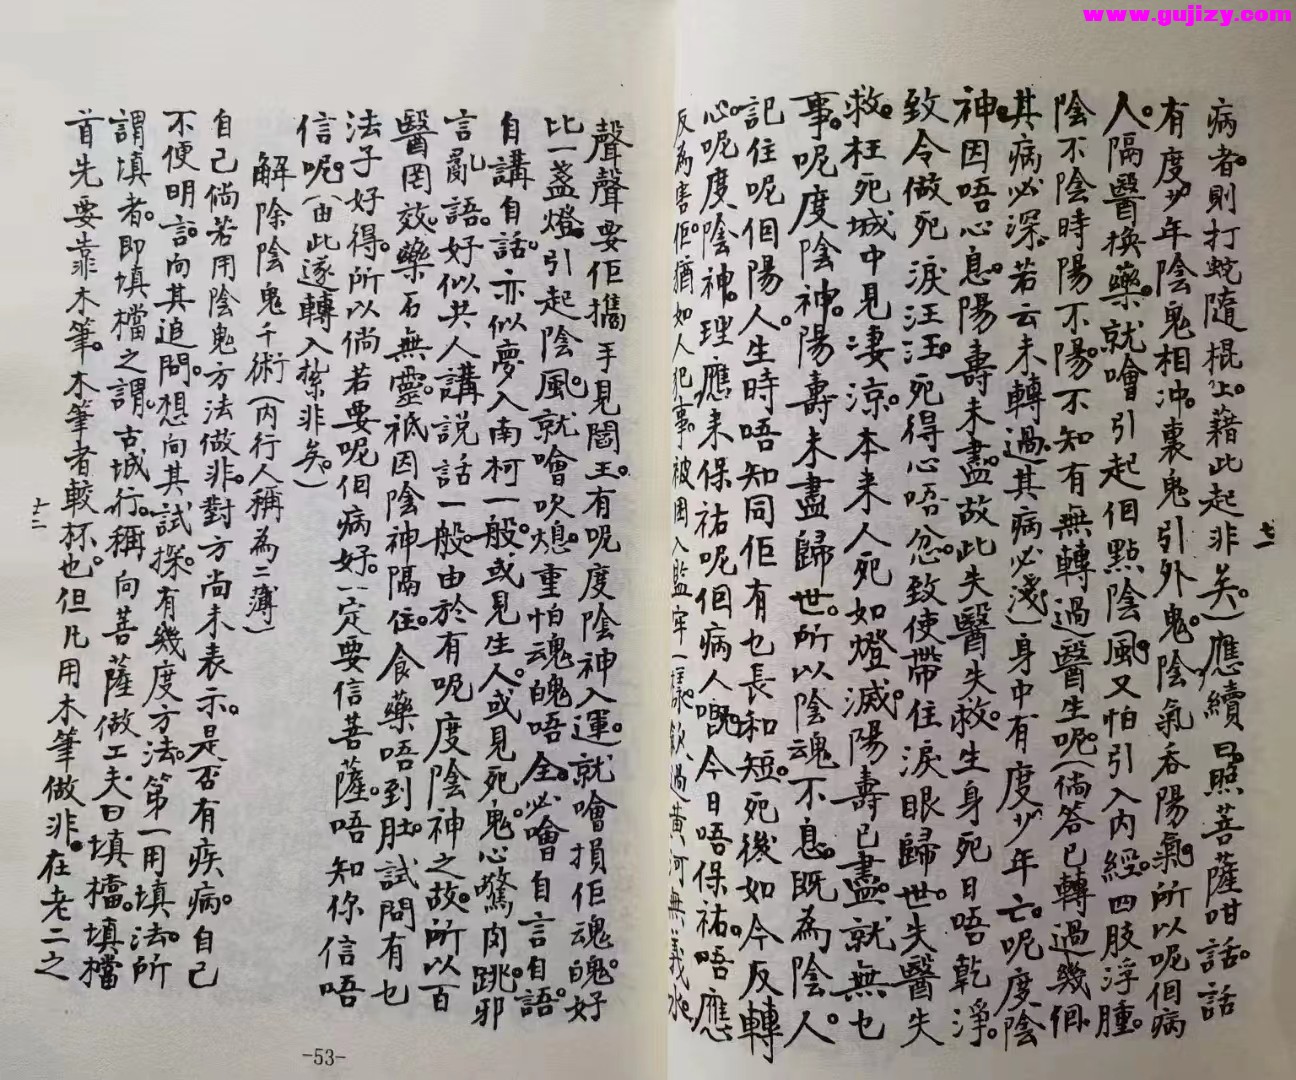 www.gujizy.com
病者。則打蛇隨棍上。藉此起非矣。）應續曰照菩薩咁話。話
有度少年陰鬼相冲。裏鬼引外鬼。陰氣吞陽氣。所以呢個病
人。隔醫換藥。就噲引起個點陰風。又怕引入內經。四肢浮腫。
陰不陰時陽不陽。不知有無轉過醫生呢。（倘答已轉過幾個。
其病必深。若云未轉過。其病必淺）身中有度少年亡。呢度陰
神。因唔心息。陽壽未盡。故此失醫失救。生身死日唔乾淨。
致令做死淚汪汪。死得心唔忿。致使帶住淚眼歸世。失醫失
救。枉死城中見淒涼。本来人死如燈滅。陽壽已盡。就無乜
事。呢度陰神。陽壽未盡歸世。所以陰魂不息。既為陰人。
記住呢個陽人。生時唔知同佢有乜長和短。死後如今反轉
心。呢度陰神。理應来保祐呢個病人嘅。今日唔保祐。唔應
反為害佢。猶如人犯事。被困入監牢一樣。飲過黃河無義水。
七一
聲聲要佢攜手見閻王。有呢度陰神入運。就噲損佢魂魄。好
比一盞燈。引起陰風。就噲吹熄。重怕魂魄唔全。必噲自言自語。
自講自話。亦似夢入南柯一般。或見生人。或見死鬼。心驚肉跳。邪
言亂語。好似共人講說話一般。由於有呢度陰神之故。所以百
醫罔效。藥石無靈。祇因陰神隔住。食藥唔到肚。試問有乜
法子好得。所以倘若要呢個病好。一定要信菩薩。唔知你信唔
信呢。（由此遂轉入紮非矣。）
解除陰鬼千術（內行人稱為二薄）
自己倘若用陰鬼方法做非。對方尚未表示。是否有疾病。自己
不便明言。向其追問。想向其試探。有幾度方法。第一用填法。所
謂填者。即填檔之謂。古城行。稱向菩薩做工夫曰填檔。填檔
首先要靠木筆。木筆者較杯也。但凡用木筆做非。在老二之
七二
-53-